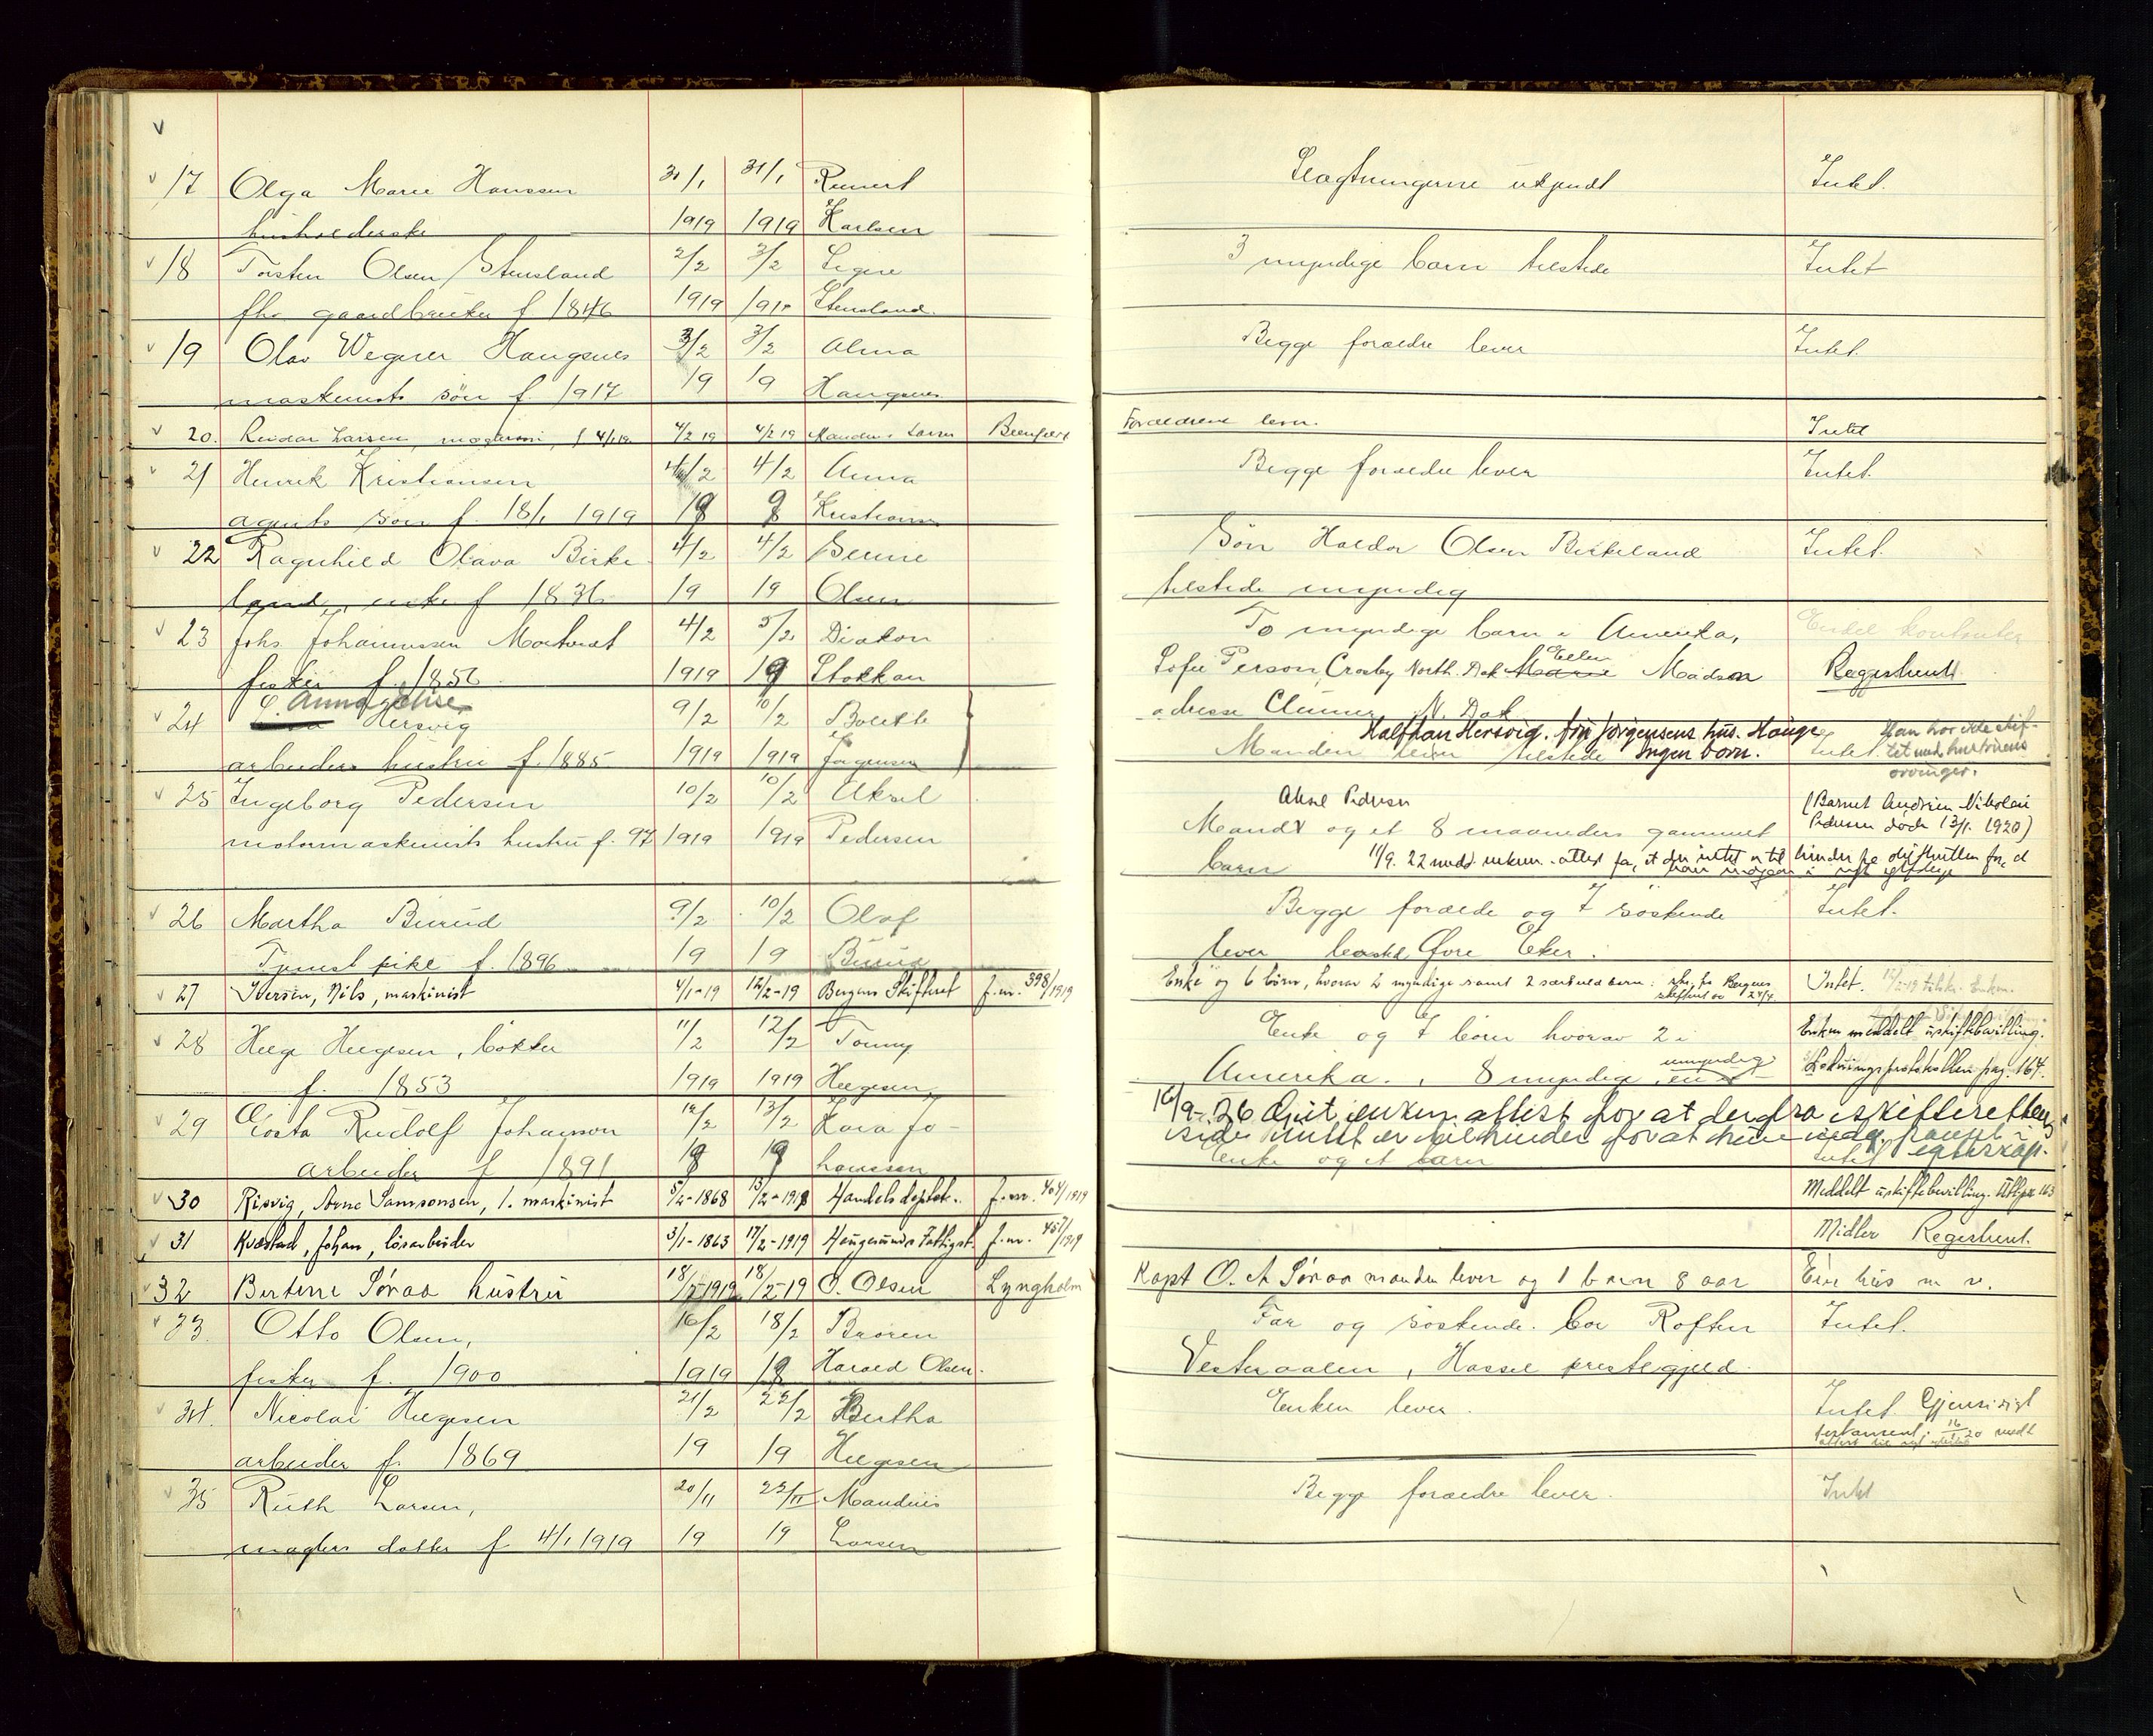 17 Olga Marie Hanssen 31/1 31/1 Reinert Slægtningerne ukjendt Intet.
husholderske 1919 1919 Karlsen
18 Torsten Olsen Stensland 2/2 3/2 Signe 3 myndige barn tilstede Intet
fhv. gaardbruker f 1846 1919 191 Stensland.
19 Olav Wegner Haugsnes 3/2 3/2 Alma Begge forældre lever Intet.
maskinists søn f. 1917 19 19 Haugsnes
20. Reidar Larsen, 4/2 19 4/2 19 Mandius Larsen Forældrene lever. Intet
21 Henrik Kristiansen 4/2 4/2 Anna Begge forældre lever Intet.
agents søn f. 18/1 1919 19 9 Kristiansen
22 Ragnhild Olava Birke- 4/2 4/2 Søn Haldor Olsen Birkeland Intet.
land, enke f 1836 19 19 Olsen tilstede myndig
23 Johs. Johannessen 4/2 5/2 Diakon To myndige barn i Amerika,
fisker f. 1856 1919 19 Stokkan Sofie Person, Crosby North. Dak Marie Ellen Madson Registrert.
adresse N. Dak
24 Anna Hersvig 9/2 10/2 Halfdan Hersvig. Jørgensens hus. Hauge Han har ikke skif-
arbeiders hustru f. 1885 1919 1919 Jørgensen Manden lever tilstede Ingen barn. Intet. tet med hustruens
arvinger.
25 Ingeborg Pedersen 10/2 10/2 Aksel Aksel Pedersen (Barnet Andreas Nikolai
motormaskinists hustru f. 97 1919 1919 Pedersen Mand og et 8 maaneders gammelt Pedersen døde 13/1. 1920)
barn 11/9. 22 medd. enkem.-attest for, at der intet er til hinder fra skifteretten for, at
han indgaar i nyt egteskap
26 Martha Burud 9/2 10/2 Olaf Begge forælde og 7 søskende Intet.
Tjenestpike f. 1896 19 19 Burud lever Øvre Eker.
27 Iversen, Nils, maskinist 4/1-19 12/2-19 Bergens Skifteret J.nr. 398/1919 Enke og 6 børn, hvorav 2 myndige samt 2 særkuldbarn. Intet.
28 Helge Helgesen, bøkker 11/2 12/2 Tonny Enke og 7 børn hvorav 2 i Enken meddelt uskiftebevilling.
f. 1853 1919 1919 Helgesen Amerika. 8 myndige, en umyndig pag. 164.
29 Gøsta Rudolf Johanson 12/2 13/2 Kara Jo- 16/9-26 Git enken attest for at der fra skifteretten
arbeider f 1891 19 19 hanssen side intet er til hinder for at hun egteskap.
Enke og et barn Intet
30 Risvig, Arne Samsonsen, 1. maskinist 5/4-1868 13/2-1918 Handelsdeptet. J.nr. 404/1919 Meddelt uskiftebevilling. 163
31 Kvalstad, Johan, løsarbeider 3/1-1863 17/2-1919 Haugesunds Fattigst. J.nr. 457/1919 Midler Registrert.
32 Bertine Søraa hustru 18/2 1919 18/2-19 O. Olsen Lyngholm Kapt O. A Søraa manden lever og 1 barn 8 aar Eier hus m v.
33. Otto Olsen, 16/2 18/2 Broren Far og søskende. bor Roften Intet.
fisker f. 1900 1919 19 Harald Olsen. Vesteraalen, Hassel prestegjeld
34. Nicolai Helgesen 21/2 22/2 Bertha Enken lever. Intet. Gjensidigt
arbeider f. 1869 19 19 Helgesen testament. 16/1 20 medt
35 Ruth Larsen, 20/11 22/11 Mandius Begge forældre lever. Intet
maglers datter f 4/1 1919 19 19 Larsen